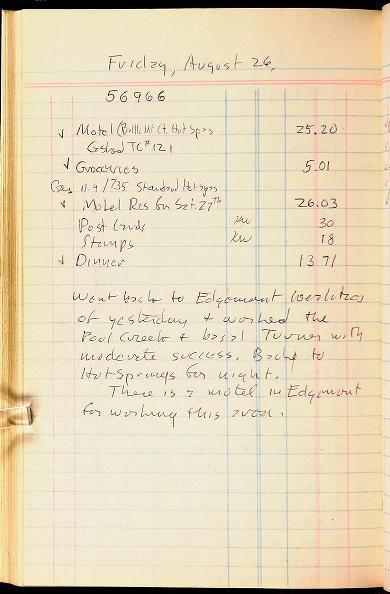 Friday, August 26,
56966
√ Motel (Battle Mt Ct. Hot Spgs 25.20
Cashed TC #121
√ Groceries 5.01
Gas 11.9/735 Standard Hot Spgs
√ Motel Res for Sat. 27th 26.03
Post Cards 30
Stamps 18
√ Dinner 13 71
Went back to Edgemont localities
of yesterday & worked the
Pool Creek & basal Turner with
moderate success. Back to
Hot Springs for night.
There is a motel in Edgemont
for working this area.